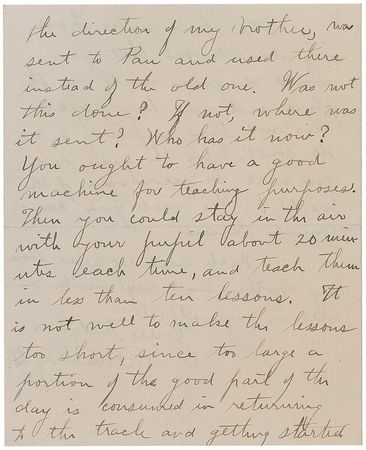 the direction of my brother, was
sent to Pau and used there
instead of the old one. Was not
this done? If not, where was
it sent? Who has it now?
You ought to have a good
machine for teaching purposes.
Then you could stay in the air
with your pupil about 20 min-
utes each time, and teach them
in less than ten lessons. It
is not well to make the lessons
too short, since too large a
portion of the good part of the
day is consumed in returning
to the track and getting started